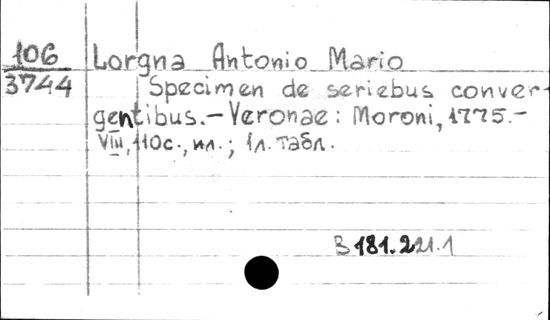 106 Lorgna Antonio Mario
3744 Specimen de seriebus conver-
gentibus.- Veronae: Moroni, 1775.-
VIII, 110с., ил.; 1л. табл.
В 181.221.1